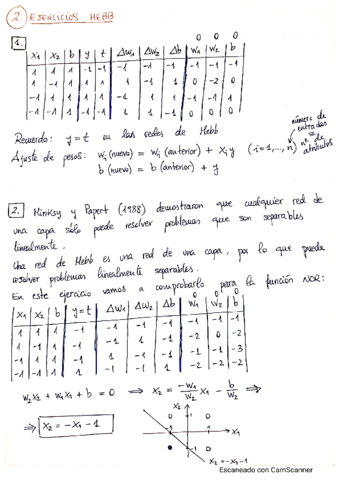 2 EJERCICIOS HEBB
1.
0 0 0
x₁ x₂ b y t Δw₁ Δw₂ Δb w₁ w₂ b
1 1 1 -1 -1 -1 -1 -1 -1 -1 -1
Recuerdo: y=t en las redes de Hebb
Ajuste de pesos: wᵢ (nuevo) = wᵢ (anterior) + xᵢy (i=1,...,n)
b (nuevo) = b (anterior) + y
número de
entradas
nº de
atributos
2. Minksy y Papert (1988) demostraron que cualquier red de
una capa sólo puede resolver problemas que son separables
linealmente.
Una red de Hebb es una red de una capa, por lo que puede
resolver problemas linealmente separables.
En este ejercicio vamos a comprobarlo para la función NOR:
0 0 0
x₁ x₂ b y=t Δw₁ Δw₂ Δb w₁ w₂ b
1 1 1 -1 -1 -1 -1 -1 -1 -1
1 -1 1 -1 -1 1 -1 -2 0 -2
-1 1 1 -1 1 -1 -1 -1 -1 -3
-1 -1 1 1 -1 -1 1 -2 -2 -2
w₂x₂ + w₁x₁ + b = 0 ⟹ x₂ = -w₁/w₂ x₁ - b/w₂ ⟹
⟹ x₂ = -x₁ - 1
x₂
x₁
x₂=-x₁-1
Escaneado con CamScanner